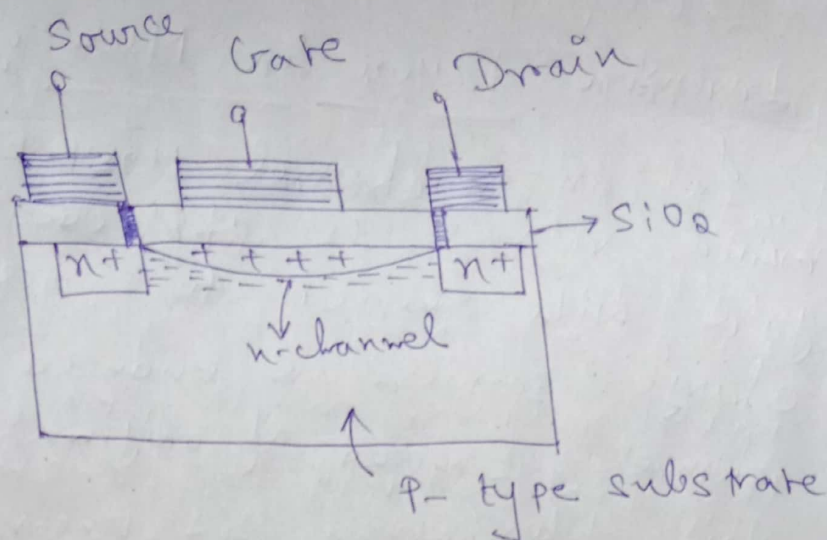 Source
Gate
Drain
SiO2
n+
+ + + +
n+
n-channel
P- type substrate